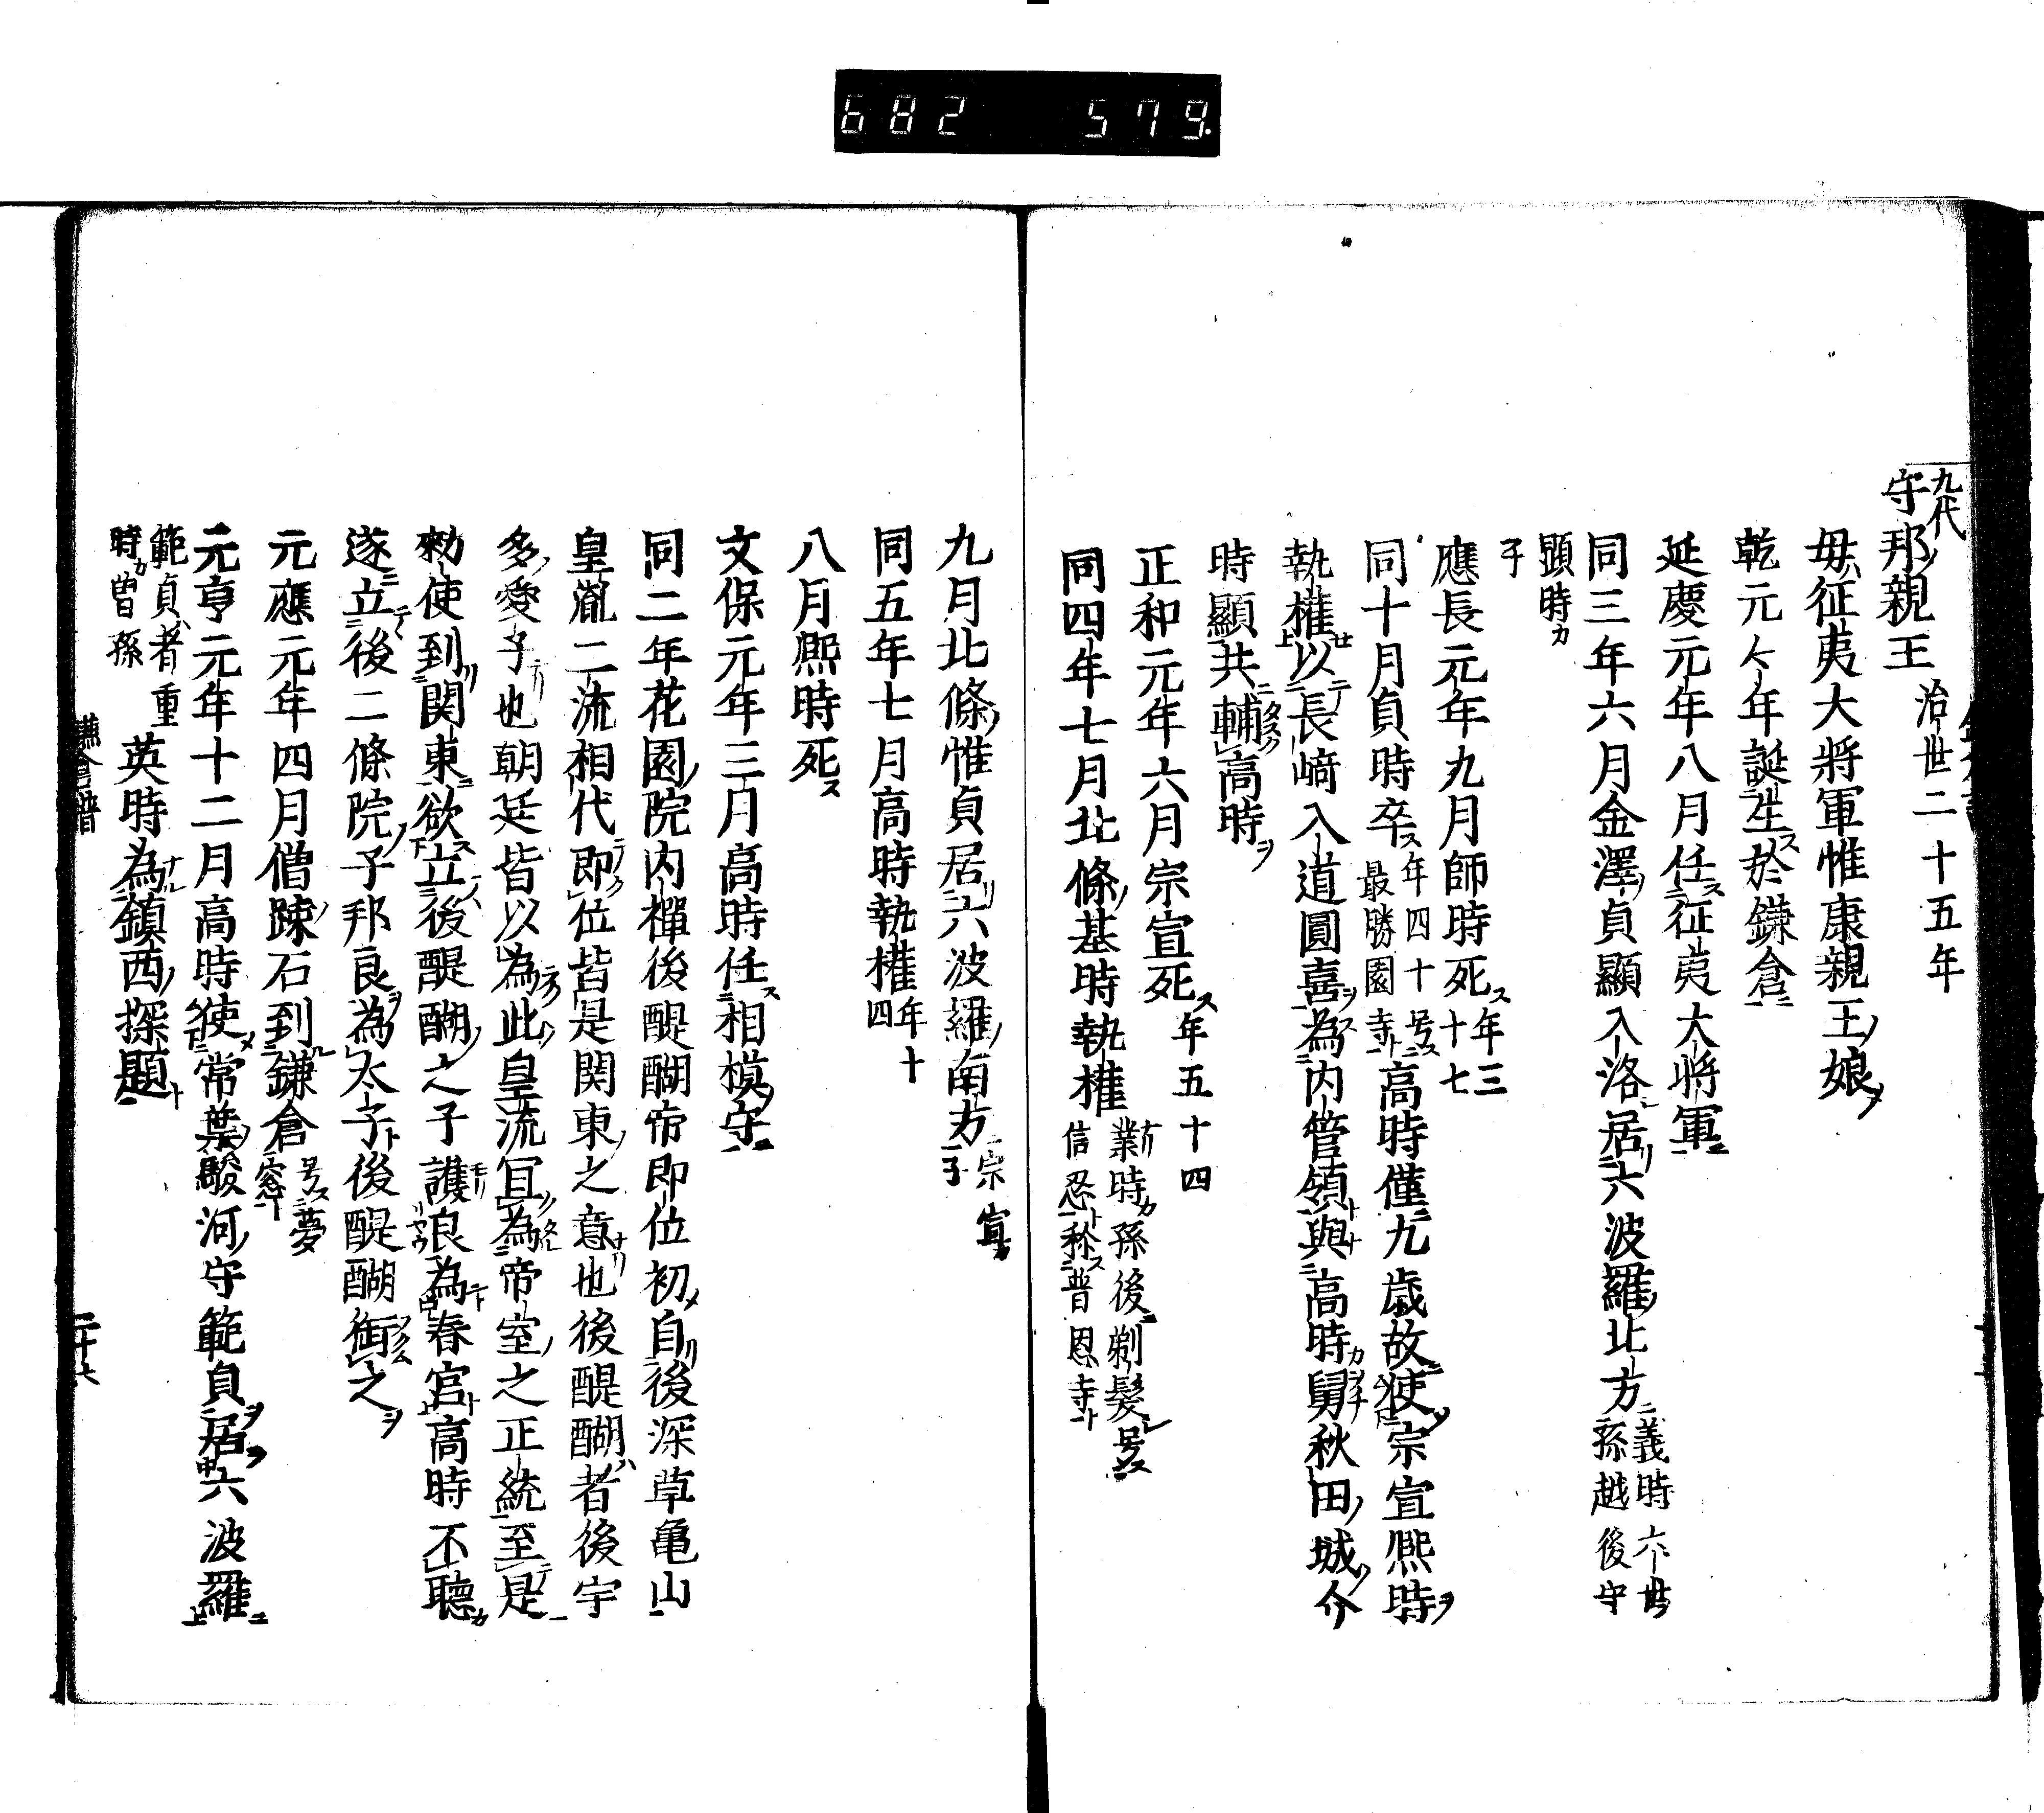 682 579.
九代
守邦親王 治世二十五年
毋征夷大將軍惟康親王娘
乾元々年誕生於鎌倉
延慶元年八月任征夷大將軍
同三年六月金澤貞顯入洛居六波羅北方 義時六世孫越後守
顕時子
應長元年九月師時死 年三十七
同十月貞時卒 年四十号最勝園寺 高時僅九歳故使宗宣熈時
執權以長﨑入道圓喜為内管領與高時舅秋田城介
時顯共輔高時
正和元年六月宗宣死年五十四
同四年七月北條基時執權 業時孫後剃髮号信忍称普恩寺
九月北條惟貞居六波羅南方 宗宣子
同五年七月高時執權 年十四
八月熈時死
文保元年三月高時任相模守
同二年花園院内禪後醍醐帝即位初自後深草亀山
皇胤二流相代即位皆是関東之意也後醍醐者後宇
多愛子也朝廷皆以為此皇流冝為帝室之正統至是
勅使到関東欲立後醍醐之子護良為春宮高時不聴
遂立後二條院子邦良為太子後醍醐銜之
元應元年四月僧踈石到鎌倉 号夢窓
元亨元年十二月高時使常葉駿河守範貞居六波羅
範貞者重時曽孫 英時為鎮西探題
二十六